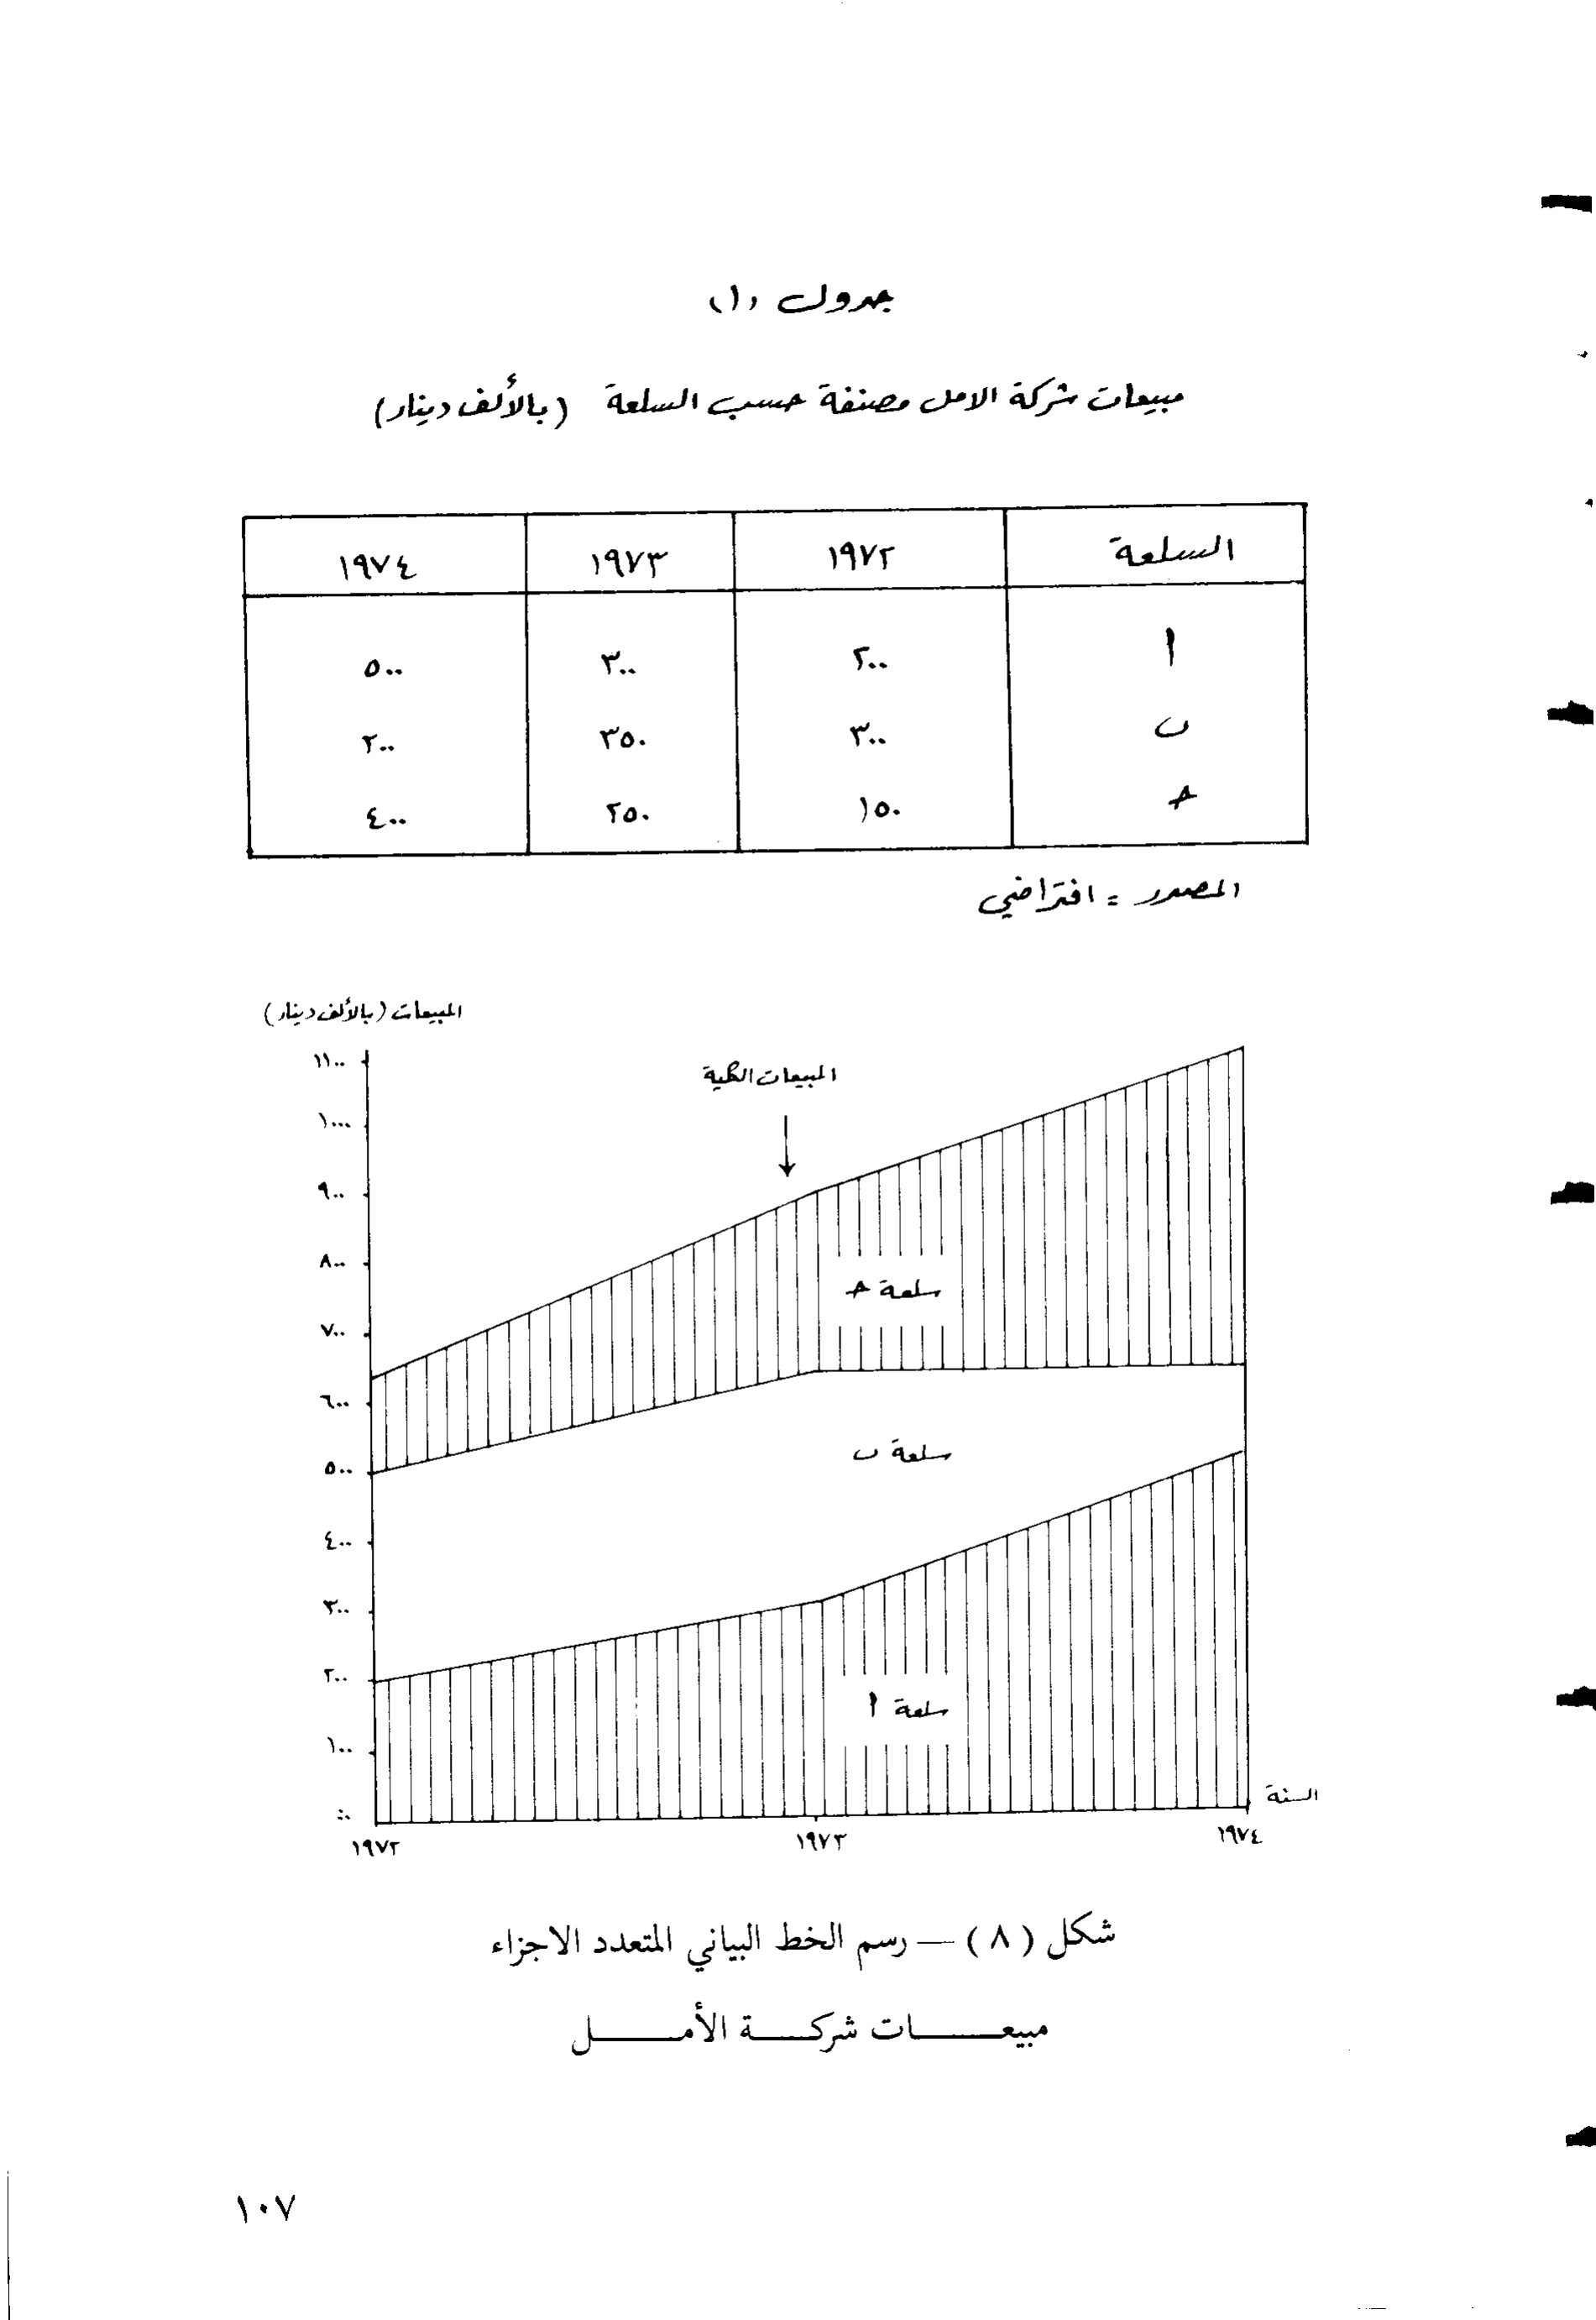 جدول (١)
مبيعات شركة الامل مصنفة حسب السلعة (بالألف دينار)
السلعة ١٩٧٢ ١٩٧٣ ١٩٧٤
ا ٢٠٠ ٣٠٠ ٥٠٠
ب ٣٠٠ ٣٥٠ ٢٠٠
ح ١٥٠ ٢٥٠ ٤٠٠
المصدر = افتراضي
المبيعات (بالألف دينار)
١١٠٠
المبيعات الكلية
١٠٠٠
٩٠٠
٨٠٠
سلعة ح
٧٠٠
٦٠٠
سلعة ب
٥٠٠
٤٠٠
٣٠٠
٢٠٠
سلعة ا
١٠٠
السنة
١٩٧٢ ١٩٧٣ ١٩٧٤
شكل (٨) — رسم الخط البياني المتعدد الاجزاء
مبيعــــات شركــــة الأمــــل
١٠٧